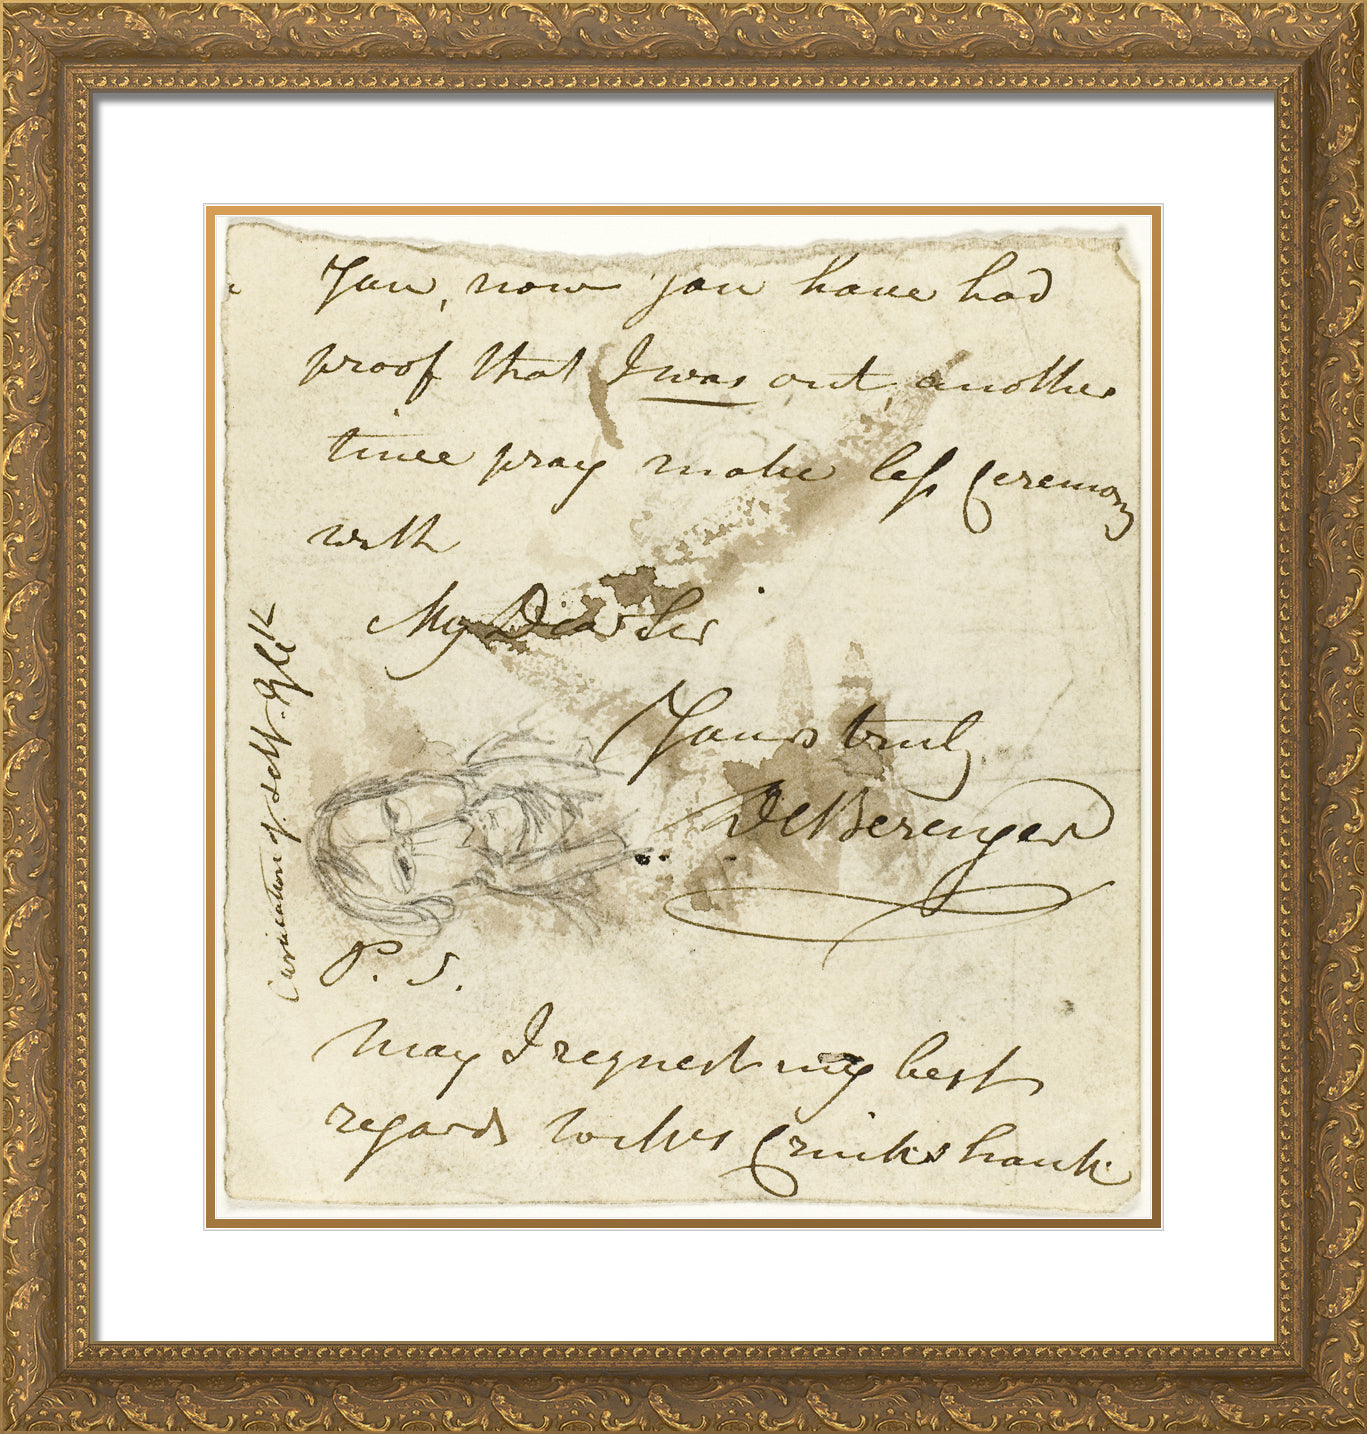 You, now you have had
proof that I was out, another
time pray make less Ceremony
with
My Dear Sir
Yours truly
De Berenger
P. S.
May I request my best
regards to Mrs Cruikshank
Caricature of self. Geo. CK